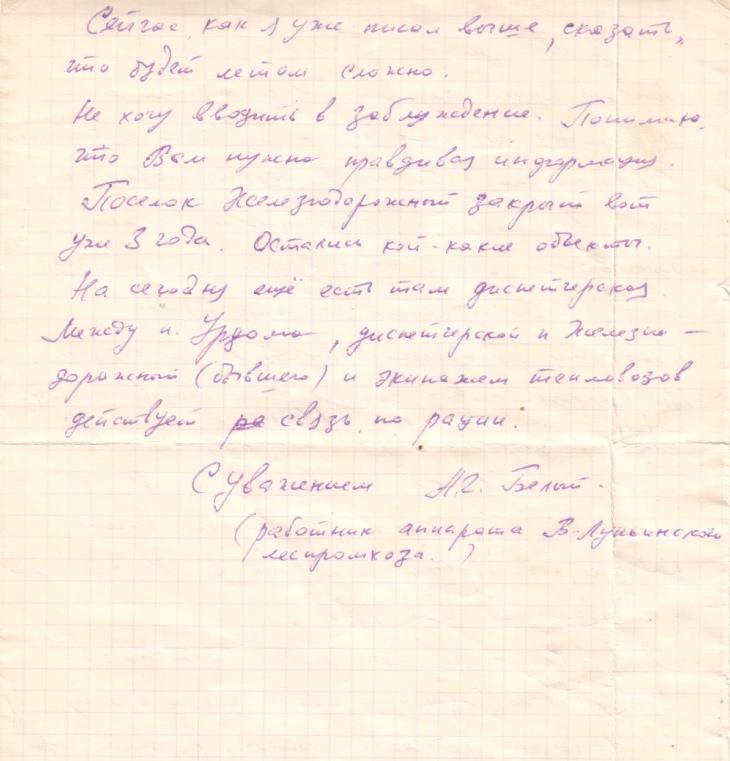 Сейчас, как я уже писал выше, сказать,
что будет летом сложно.
Не хочу вводить в заблуждение. Понимаю,
что Вам нужна правдивая информация.
Поселок Железнодорожный закрыт вот
уже 3 года. Остались кой-какие объекты.
На сегодня ещё есть там диспетчерская.
Между п. Урдома, диспетчерской п Железно-
дорожный (бывшего) и экипажем тепловозов
действует связь по рации.
С уважением А.Г. Белый.
(работник аппарата В-Лупьинской
леспромхоза.)